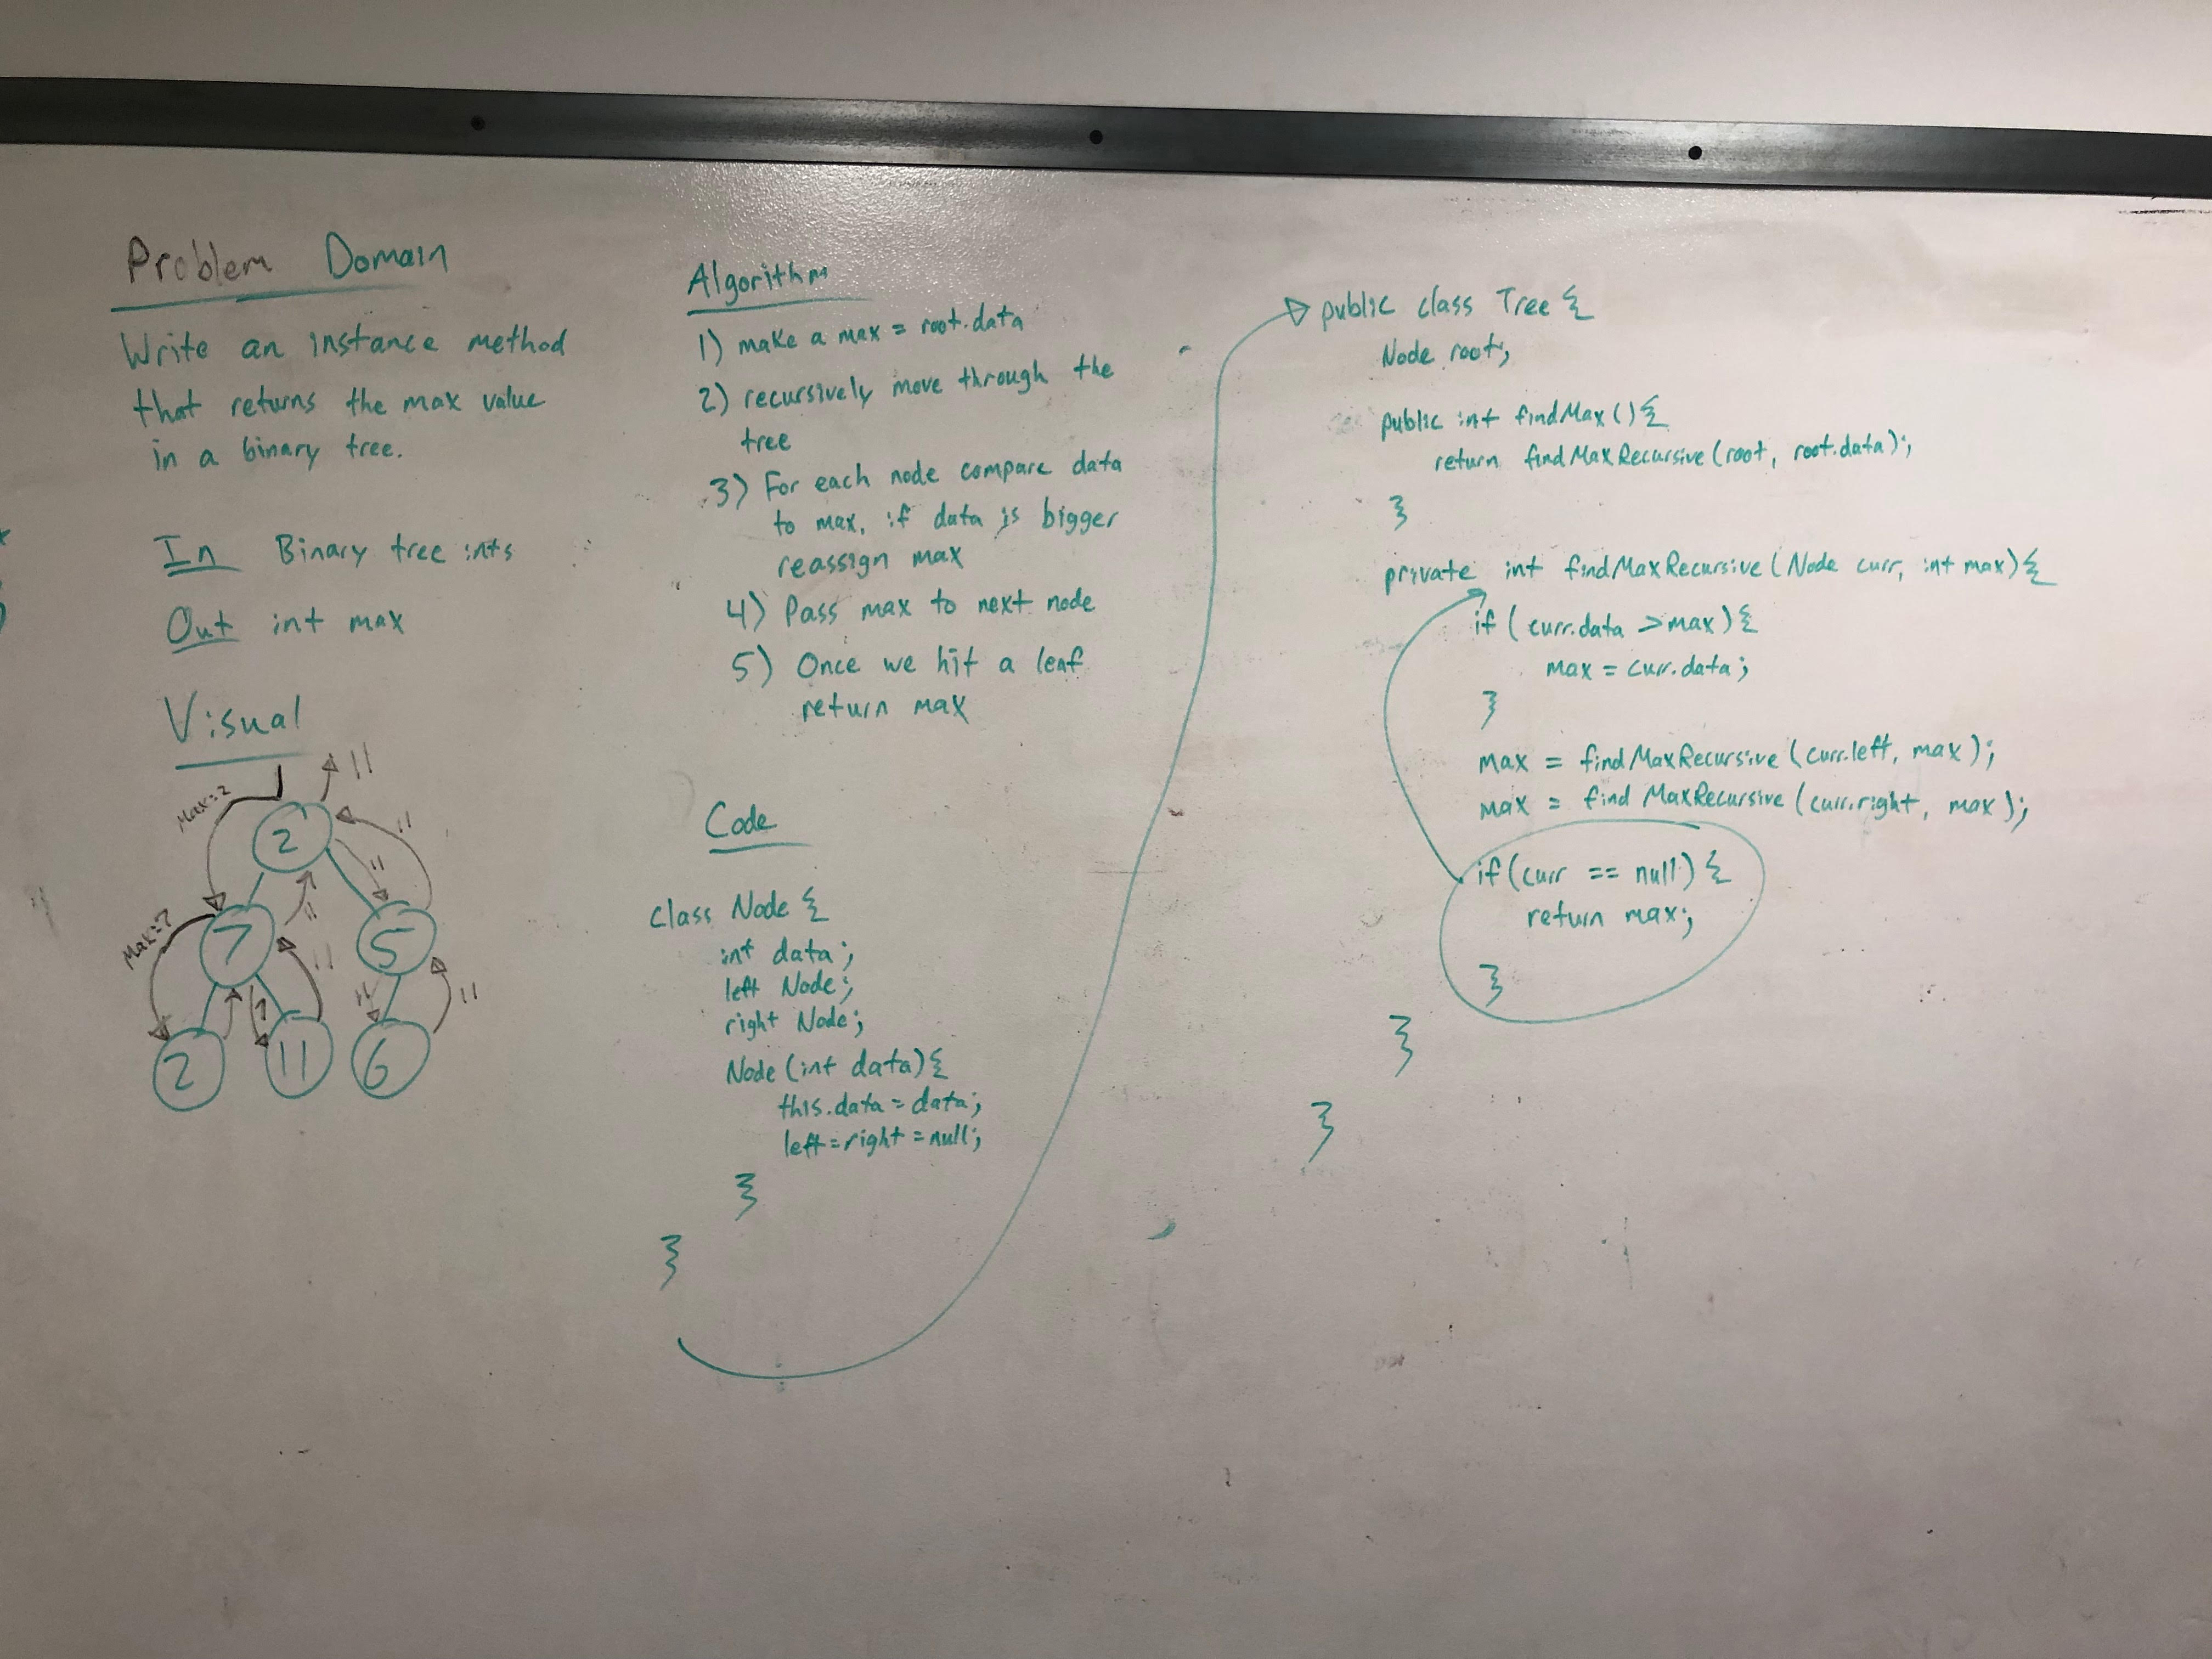 Problem Domain
Write an instance method
that returns the max value
in a binary tree.
In Binary tree ints
Out int max
Visual
Max=2
11
2
11
11
11
Max=7
7
5
11
11
11
2
11
6
Algorithm
1) make a max = root.data
2) recursively move through the
tree
3) For each node compare data
to max, if data is bigger
reassign max
4) Pass max to next node
5) Once we hit a leaf
return max
Code
class Node {
int data;
left Node;
right Node;
Node (int data) {
this.data = data;
left = right = null;
}
}
public class Tree {
Node root;
public int findMax () {
return findMaxRecursive (root, root.data);
}
private int findMaxRecursive (Node curr, int max) {
if (curr.data > max) {
max = curr.data;
}
max = findMaxRecursive (curr.left, max);
max = find MaxRecursive (curr.right, max);
if (curr == null) {
return max;
}
}
}